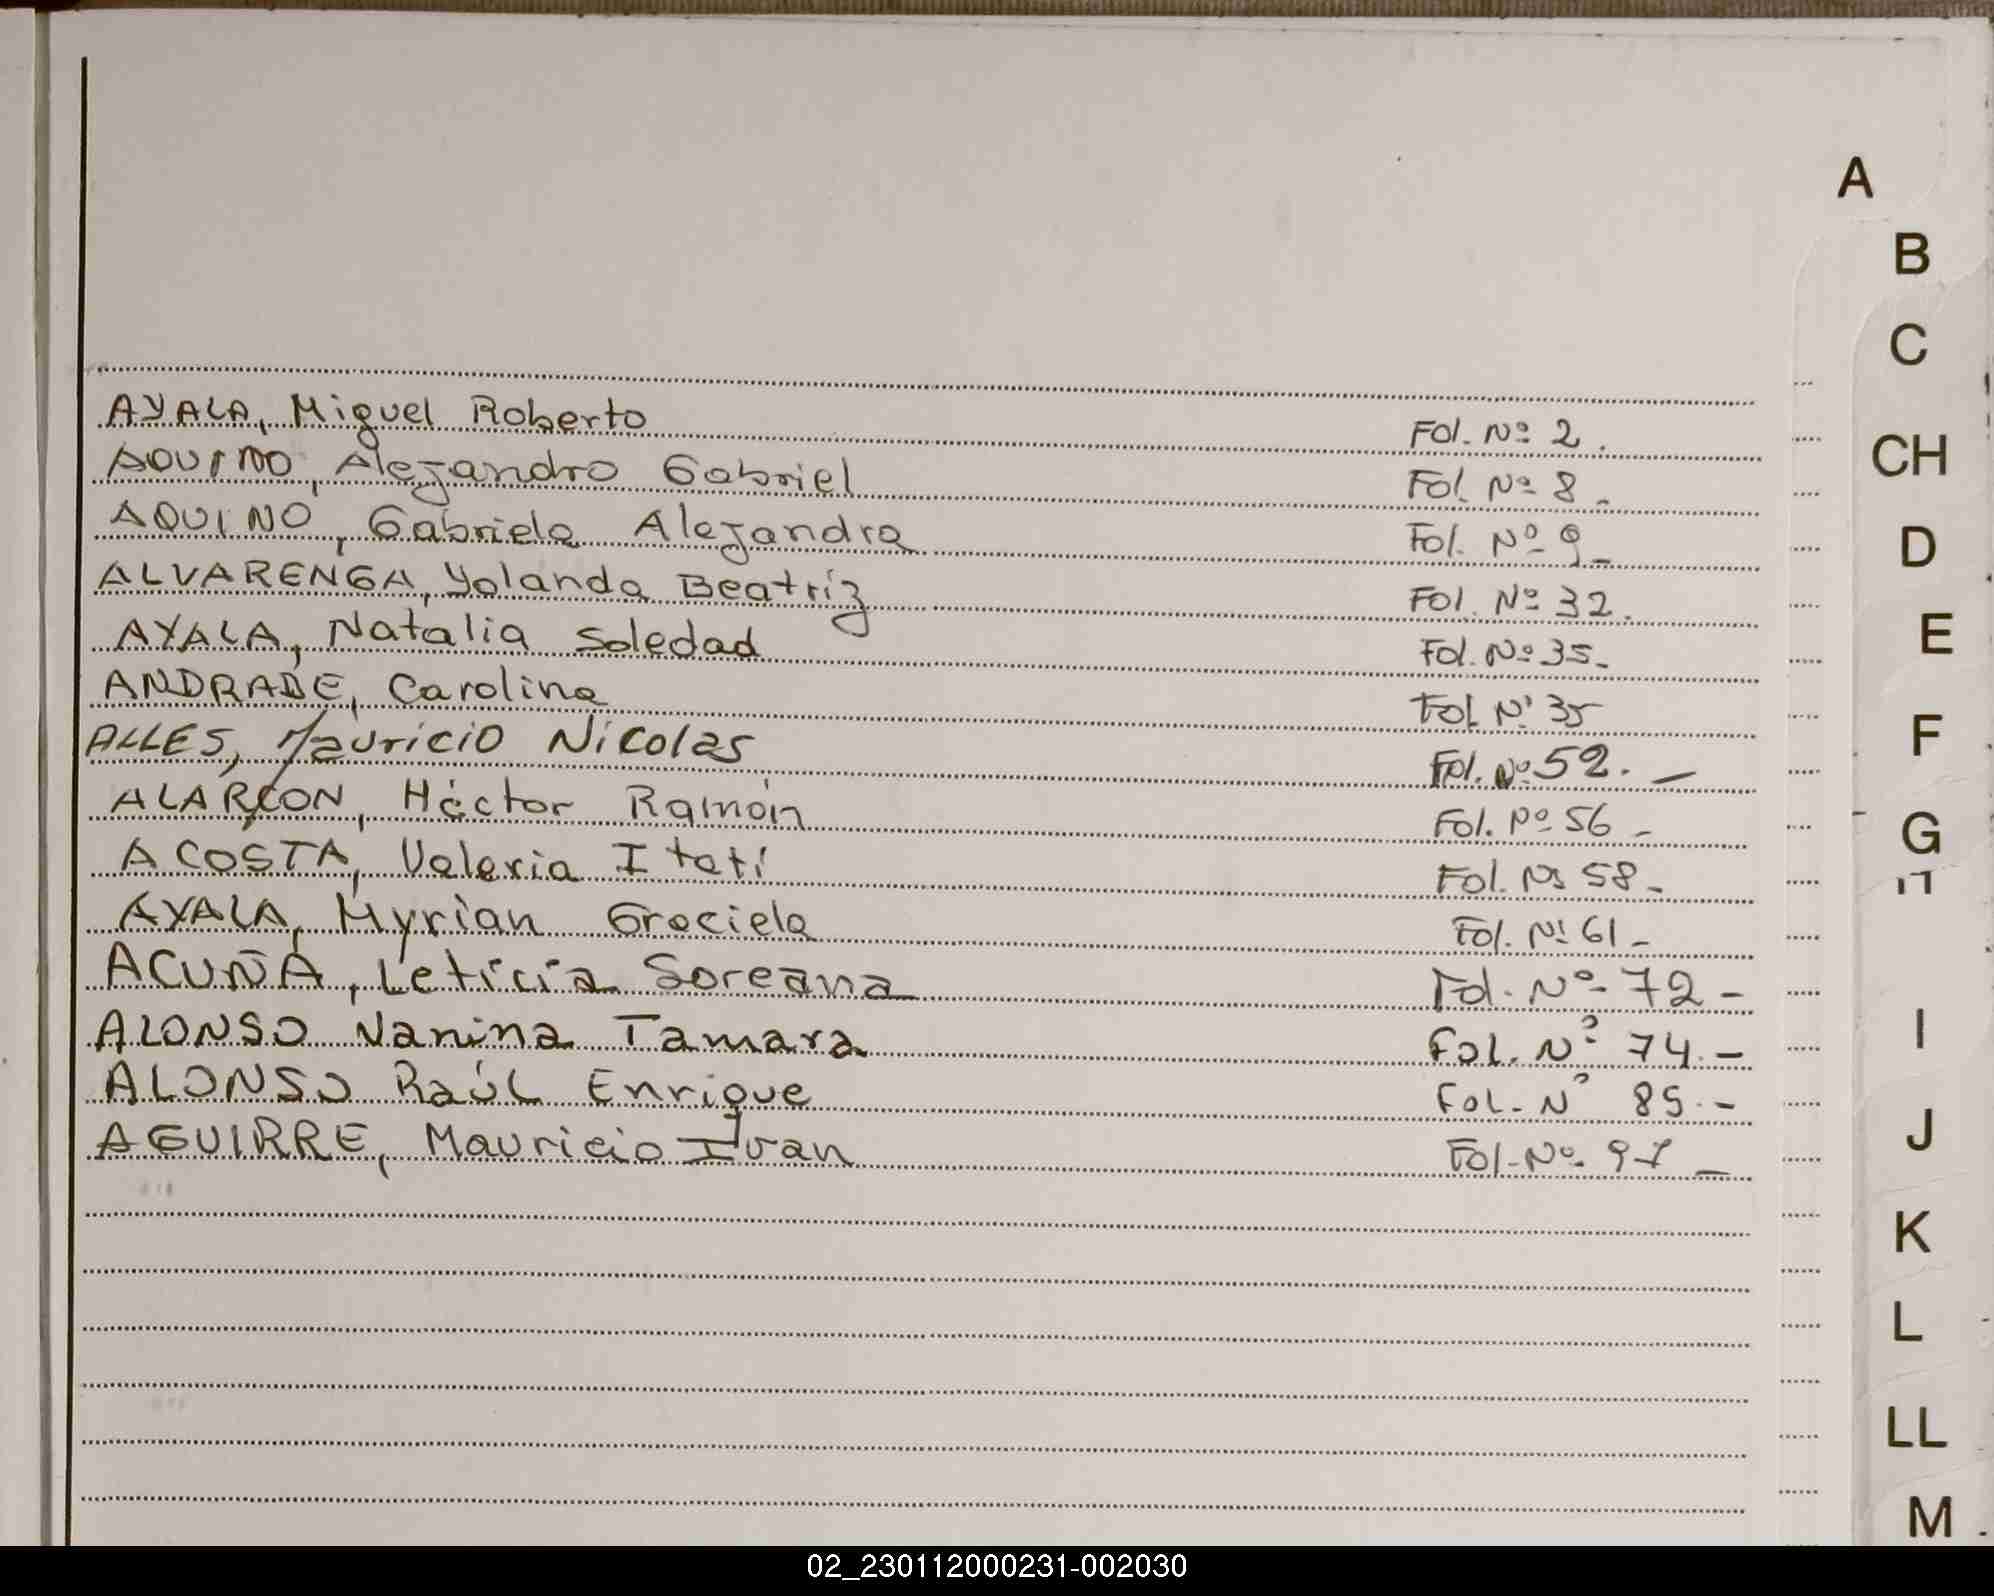 AYALA, Miguel Roberto Fol. Nº 2.
AQUINO, Alejandro Gabriel Fol. Nº 8.
AQUINO, Gabriela Alejandra Fol. Nº 9_
ALVARENGA, Yolanda Beatriz Fol. Nº 32.
AYALA, Natalia Soledad Fol. Nº 35-
ANDRADE, Carolina Fol. Nº 35
ALLES, Mauricio Nicolas Fol. Nº 52. —
ALARCON, Héctor Ramón Fol. Nº 56 -
ACOSTA, Valeria Itatí Fol. Nº 58-
AYALA, Myrian Graciela Fol. Nº 61-
ACUÑA, Leticia Soreana Fol. Nº 72-
ALONSO Nanina Tamara Fol. Nº 74.-
ALONSO Raúl Enrique Fol. Nº 85.-
AGUIRRE, Mauricio Ivan Fol. Nº 97 —
A
B
C
CH
D
E
F
G
I
J
K
L
LL
M
02_230112000231-002030